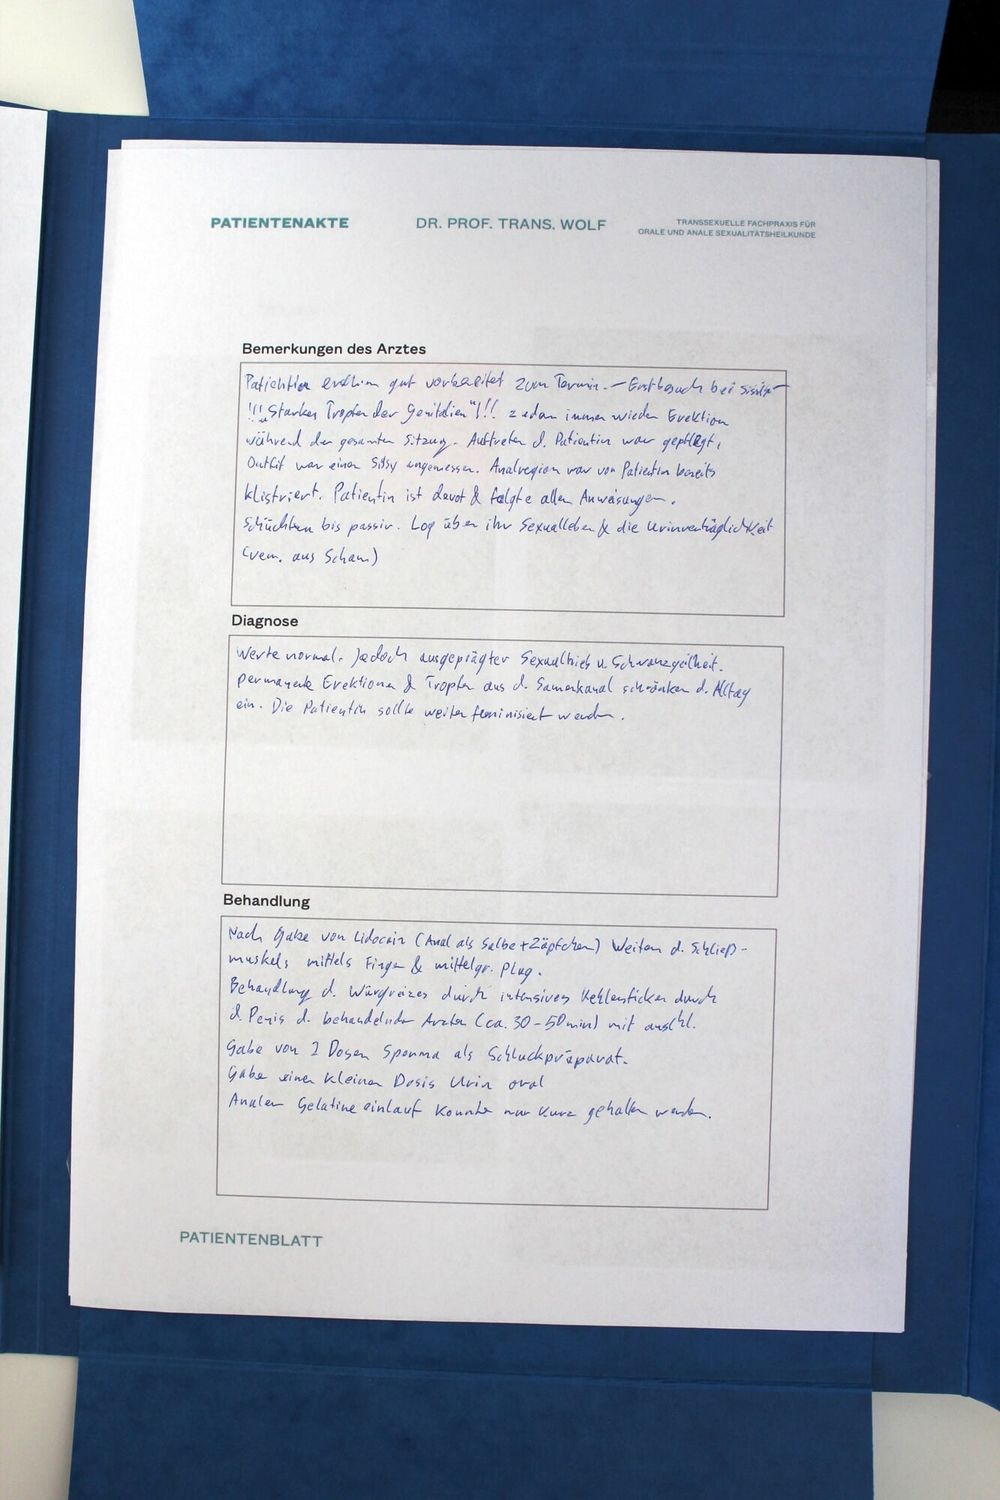 PATIENTENAKTE
DR. PROF. TRANS. WOLF
TRANSSEXUELLE FACHPRAXIS FÜR
ORALE UND ANALE SEXUALITÄTSHEILKUNDE
Bemerkungen des Arztes
Patientin erschien gut vorbereitet zum Termin. – Erstbesuch bei
!!! "Starkes Tropfen der Genitalien" !!! zudem immer wieder Erektion
während der gesamten Sitzung. Auftreten d. Patientin war gepflegt,
Outfit war einer Sissy angemessen. Analregion war von Patientin bereits
klistriert. Patientin ist devot & folgte allen Anweisungen.
Schüchtern bis passiv. Log über ihr Sexualleben & die Urinverträglichkeit
(verm. aus Scham)
Diagnose
Werte normal. Jedoch ausgeprägter Sexualtrieb u. Schwanzgeilheit.
permanente Erektionen & Tropfen aus d. Samenkanal schränken d. Alltag
ein. Die Patientin sollte weiter feminisiert werden.
Behandlung
Nach Gabe von Lidocain (Anal als Salbe + Zäpfchen) Weiten d. Schließ-
muskels mittels Finger & mittelgr. Plug.
Behandlung d. Würgreizes durch intensives Kehlenficken durch
d. Penis d. behandelnden Arztes (ca. 30-50min) mit anschl.
Gabe von 2 Dosen Sperma als Schluckpräparat.
Gabe einer kleinen Dosis Urin oral
Analer Gelatineeinlauf konnte nur kurz gehalten werden.
PATIENTENBLATT